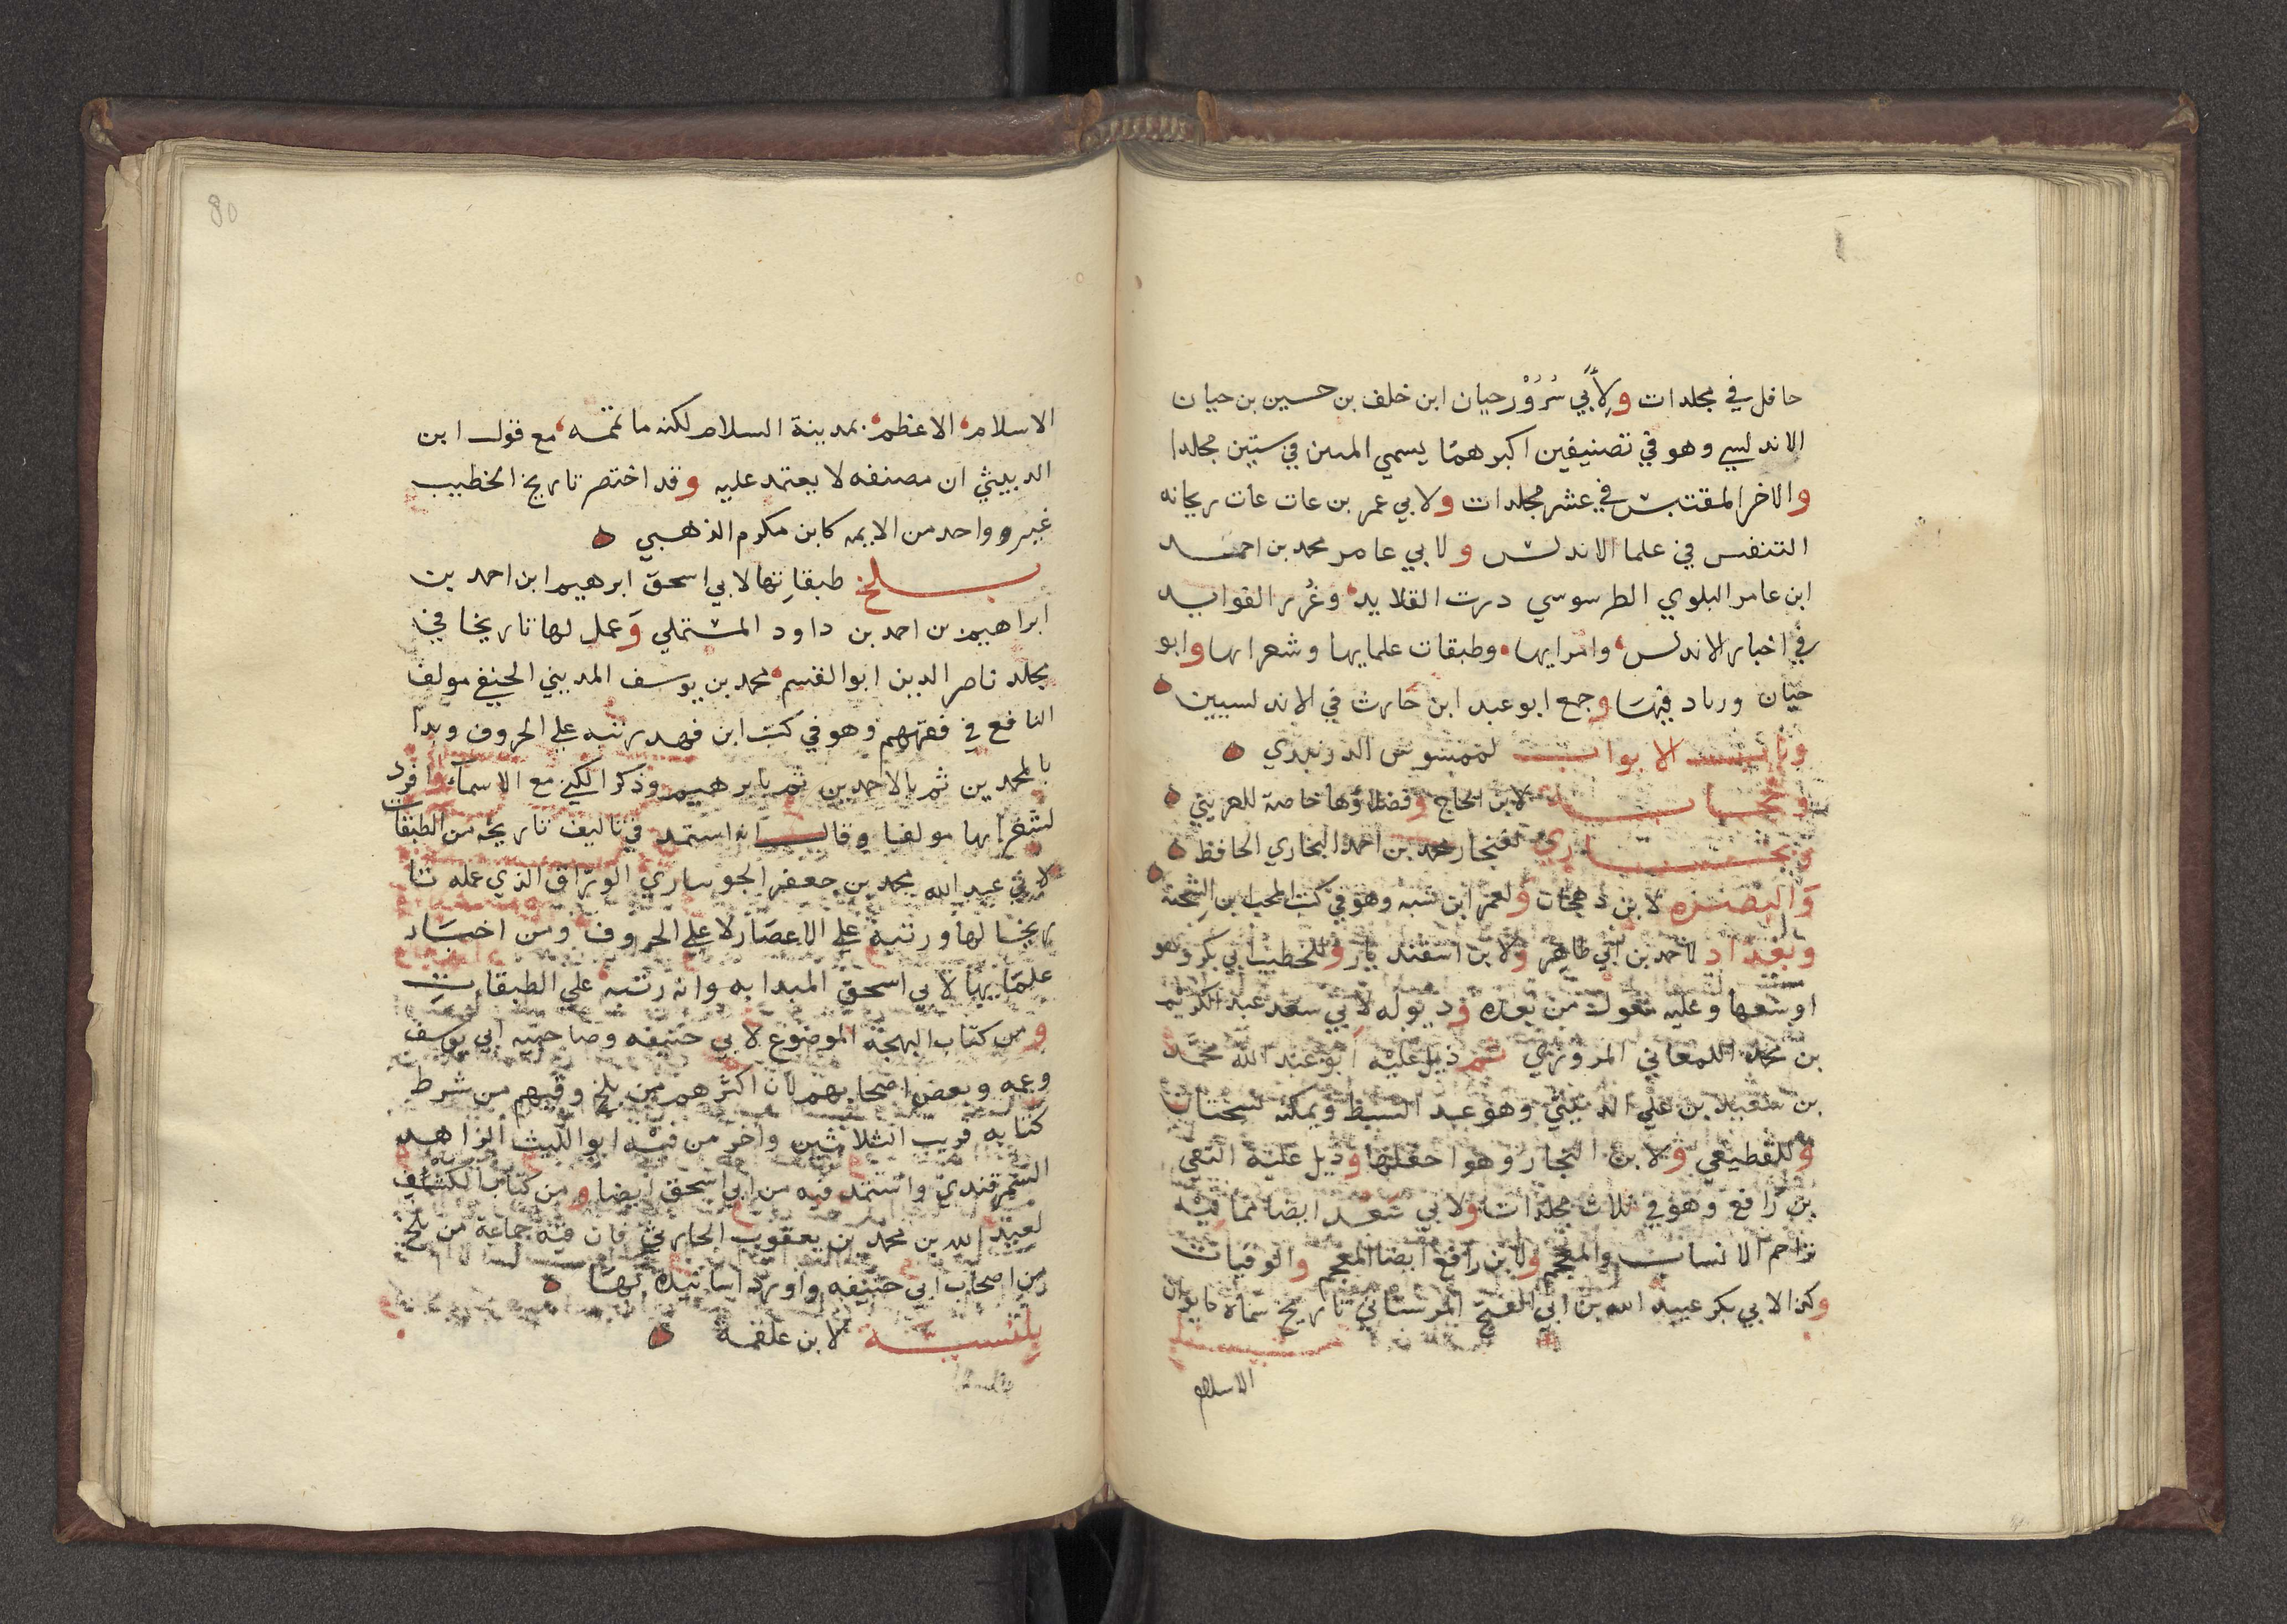 حافل في مجلدات ولأبي سُرُوْر حيان ابن خلف بن حسين بن حيان
الاندلسي وهو في تصنيفين اكبرهما يسمي المبين في ستين مجلدا
والاخر المقتبس في عشر مجلدات ولابي عمر بن عات عات ريحانه
التنفس في علما الاندلس ولابي عامر محمد بن احمد
ابن عامر البلوي الطرسوسي درت القلايد وغُرر الفوايد
في اخبار الاندلس وامرايها وطبقات علمايها وشعرايها وابو
حيان وزاد فيها وجمع ابو عبد ابن حارث في الاندلسيين
الابواب لممسوس الدرنبدي
لابن الحاج وفضلاؤها خاصة للهريني
لغنجار محمد بن احمد البخاري الحافظ
والبصره لابن دهجان ولعمر ابن شبه وهو في كتب المحب ابن الشحنة
وبغداد لاحمد بن ابي طاهر ولابن اسفنديار وللخطيب ابي بكر وهو
اوسعها وعليه معول من بعده وذيوله لابي سعد عبد الكريم
بن محمد اللمعاني المروزي ثم ذيل عليه ابو عبد الله محمد
بن سعيد بن علي الدبيثي وهو عبد السبط ويمكنه نسختان
وللقطيعي ولابن النجار وهو احفلها وذيل عليه التقي
بن رافع وهو في ثلاث مجلدات ولابي سعد ايضا مما فيه
تراجم الانساب والمعجم ولابن رافع ايضا المعجم والوفيات
وكذا لابي بكر عبيد الله بن ابي الفتح المرستاني تاريخ سماه كابوان
الاسلام
80
الاسلام الاعظم بمدينة السلام لكنه ما تممه مع قول ابن
الدبيثي ان مصنفه لا يعتمد عليه وقد اختصر تاريخ الخطيب
غير وواحد من الايمه كابن مكرم الذهبي
بلخ طبقاتها لابي اسحق ابرهيم ابن احمد بن
ابراهيم بن احمد بن داود المستملي وعمل لها تاريخا في
مجلد ناصر الدين ابو القسم محمد بن يوسف المديني الحنيفي مولف
النافع في فقههم وهو في كتب ابن فهد رتبه علي الحروف وبدا
بالمحمدين ثم بالاحمدين ثم بابرهيم وذكر الكني مع الاسماء وافرد
لشعرايها مولفا وقال انه استمد في تاليف تاريخه من الطبقات
لابي عبد الله محمد بن جعفر الجوباري الوراق الذي عمله تا
ريخا لها ورتبه علي الاعصار لا علي الحروف ومن اخبار
علمايها لابي اسحق المبدا به وانه رتبه علي الطبقات
ومن كتاب البهجة الموضوع لابي حنيفه وصاحبيه ابي يوسف
وبعض اصحابهم لان اكثرهم من بلخ وفيهم من شرط
كتابه قريب الثلاثين واخر من فيه ابو الليث الزاهد
السمرقندي واستمد فيه من ابي اسحق ايضا ومن كتاب الكشاف
لعبد الله بن محمد بن يعقوب الحارثي فان فيه جماعة من بلخ
من اصحاب ابي حنيفه واورد اسانيده لها
بلنسيه لابن علقمه